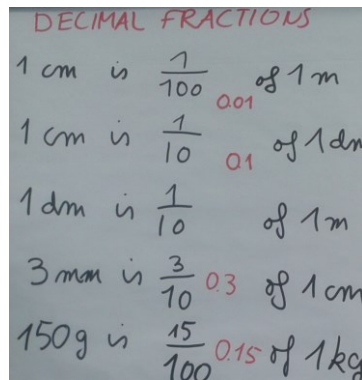 DECIMAL FRACTIONS
1 cm is 1/100 0.01 of 1 m
1 cm is 1/10 0.1 of 1 dm
1 dm is 1/10 of 1 m
3 mm is 3/10 0.3 of 1 cm
150g is 15/100 0.15 of 1 kg